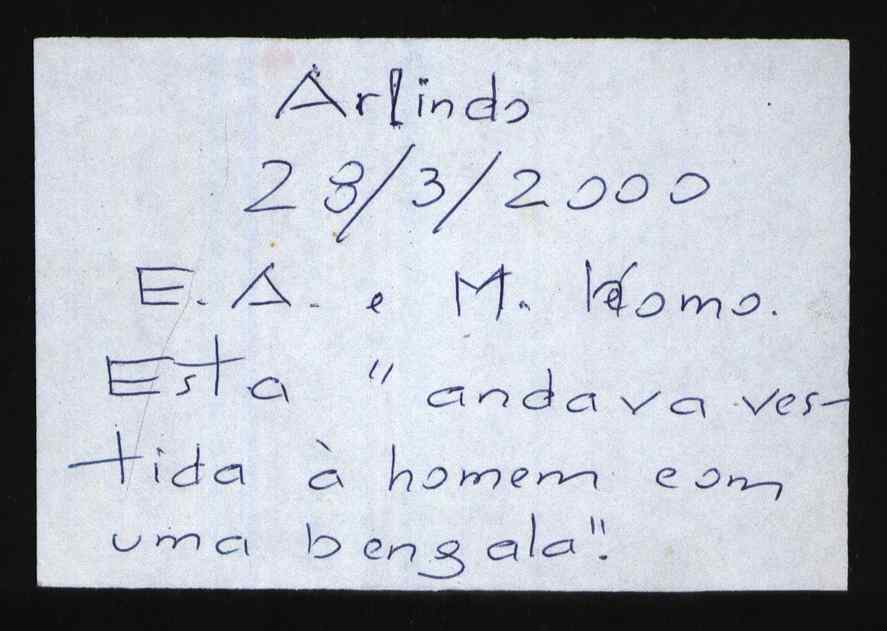 Arlindo
28/3/2000
E. A. e M.
Esta " andava ves-
tida à homem com
uma bengala".